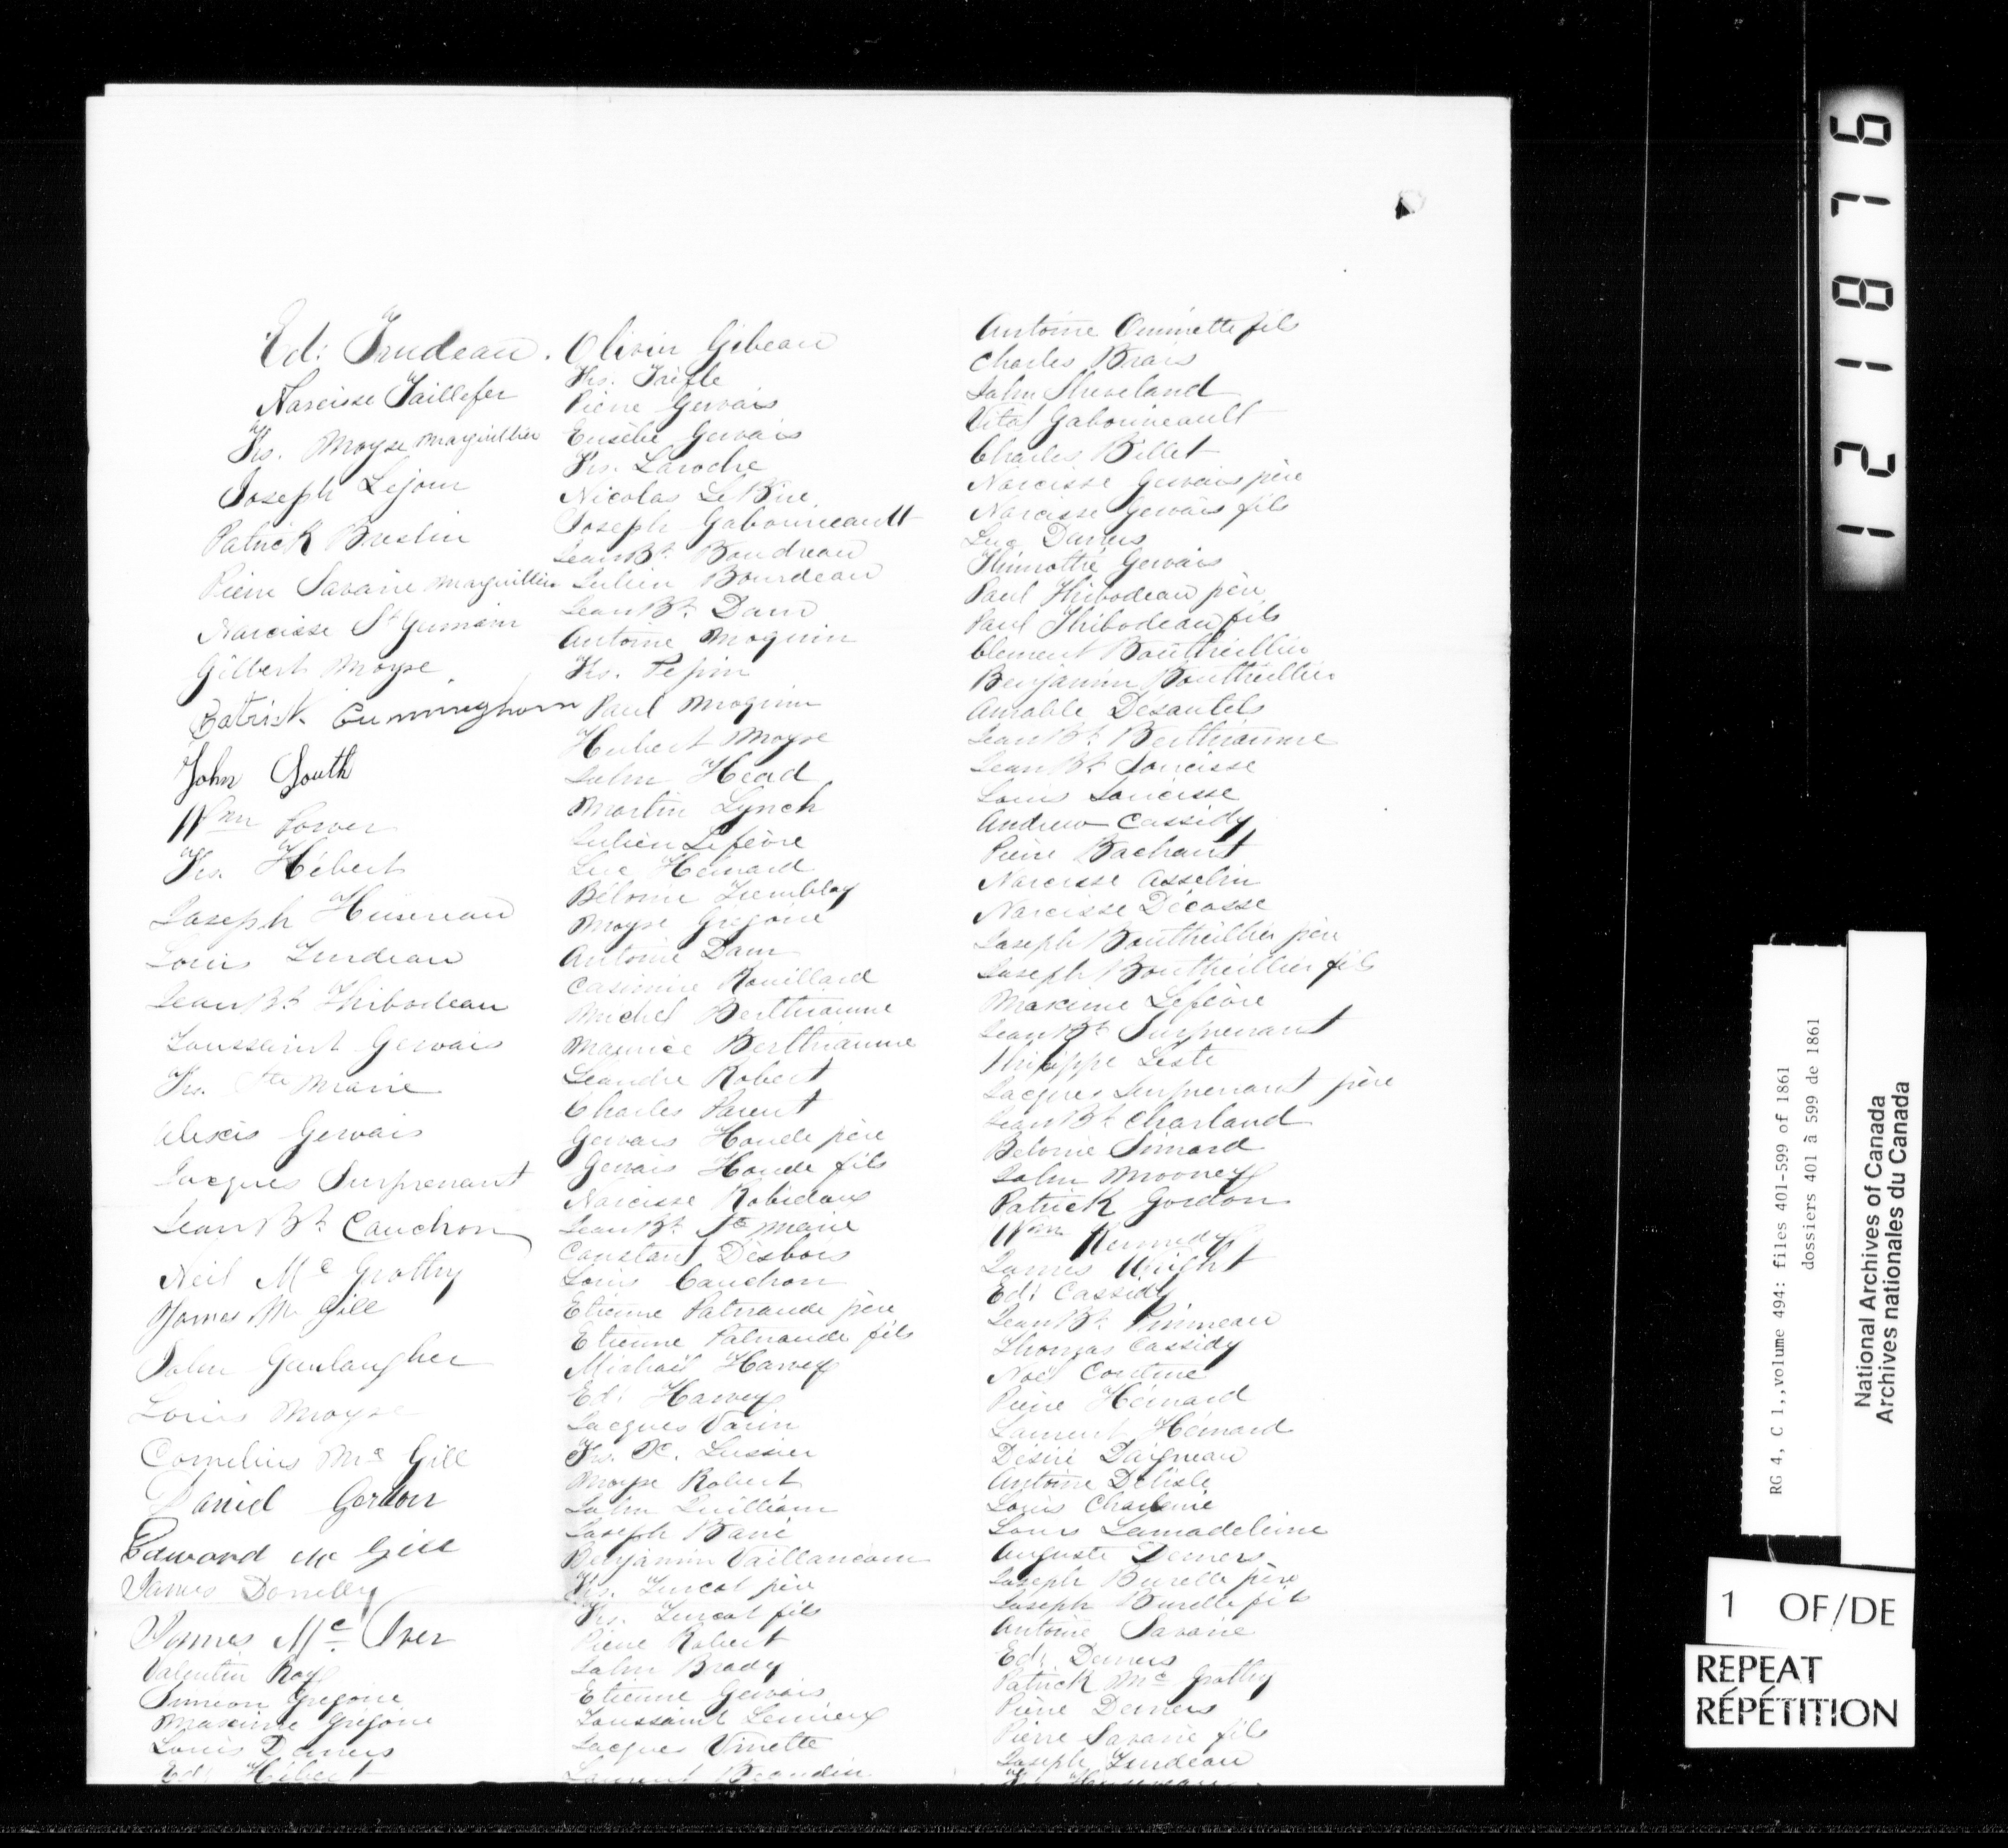 Ed: Trudeau.
Narcisse Taillefer
Frs. Moyse marguillier
Joseph Lejour
Patrick Breslin
Pierre Savarie marguillier
Narcisse St Germain
Gilbert Moyse
Patrick Cunningham
John South
Wm Power
Frs. Hébert
Joseph
Louis Trudeau
Jean Bt Thibodeau
Toussaint Gervais
Frs. Ste Marie
Alexis Gervais
Jacques Surprenant
Jean Bt Cauchon
Neil Mc Grothy
James Mc Gill
John Gaulaugher
Louis Moyse
Cornelius Mc Gill
Daniel Gordon
Edward Mc Gill
James Donelly
James Mc Iver
Valentin Roy
Simeon Grégoire
Maxime Grégoire
Louis Demers
Ed: Hébert
Olivier Gibeau
Frs. Trèfle
Pierre Gervais
Eusèbe Gervais
Frs. Laroche
Nicolas LeBue
Joseph Gabourieault
Jean Bt Boudreau
Julien Bourdeau
Jean Bt Daur
Antoine Moquin
Frs. Pepin
Paul Moquin
Hubert Moyse
John Head
Martin Lynch
Julien Lefèvre
Luc Hémard
Bélonie Tremblay
Moyse Grégoire
Antoine Daur
Casimire Rouillard
Michel Berthiaume
Maurice Berthiaume
Leandre Robert
Charles Parent
Gervais Houde père
Gervais Houde fils
Narcisse Robidoux
Jean Bt Ste Marie
Constant Desbois
Louis Cauchon
Etienne Patenaude père
Etienne Patenaude fils
Michail Harvey
Ed: Harvey
Jacques Varin
Frs. X. Lussier
Moyse Robert
John Quilliam
Joseph Barié
Benjamin Vaillancour
Frs. Turcot père
Frs. Turcot fils
Pierre Robert
John Brady
Etienne Gervais
Toussaint Lemieux
Jacques Vinette
Laurent Beaudin
Antoine Ouimette fils
Charles Brais
John
Vital Gabourieault
Charles Billet
Narcisse Gervais père
Narcisse Gervais fils
Luc
Thimothé Gervais
Paul Thibodeau père
Paul Thibodeau fils
Clement Boutheillier
Benjamin Boutheillier
Amable Desautels
Jean Bt Berthiaume
Jean Bt Narcisse
Louis Narcisse
Andrew Cassidy
Pierre Bachant
Narcisse Asselin
Narcisse Décosse
Joseph Boutheillier père
Joseph Boutheillier fils
Maxime Lefèvre
Jean Bt Surprenant
Philippe Leste
Jacques Surprenant père
Jean Bt Charland
Belonie Simard
John Mooney
Patrick Gordon
Wm Kennedy
James Wright
Ed: Cassidy
Jean Bt Pinineau
Thomas Cassidy
Noël
Pierre Hémard
Laurent Hémard
Désiré Daigneau
Antoine Delisle
Louis
Louis Lamadeleine
Auguste Demers
Joseph Burelle père
Joseph Burelle fils
Antoine Savarie
Ed: Demers
Patrick Mc Grothy
Pierre Demers
Pierre Savarie fils
Joseph Trudeau
121876
RG 4, C 1,,volume 494: files 401-599 of 1861
dossiers 401 à 599 de 1861
National Archives of Canada
Archives nationales du Canada
1 OF/DE
REPEAT
RÉPÉTITION